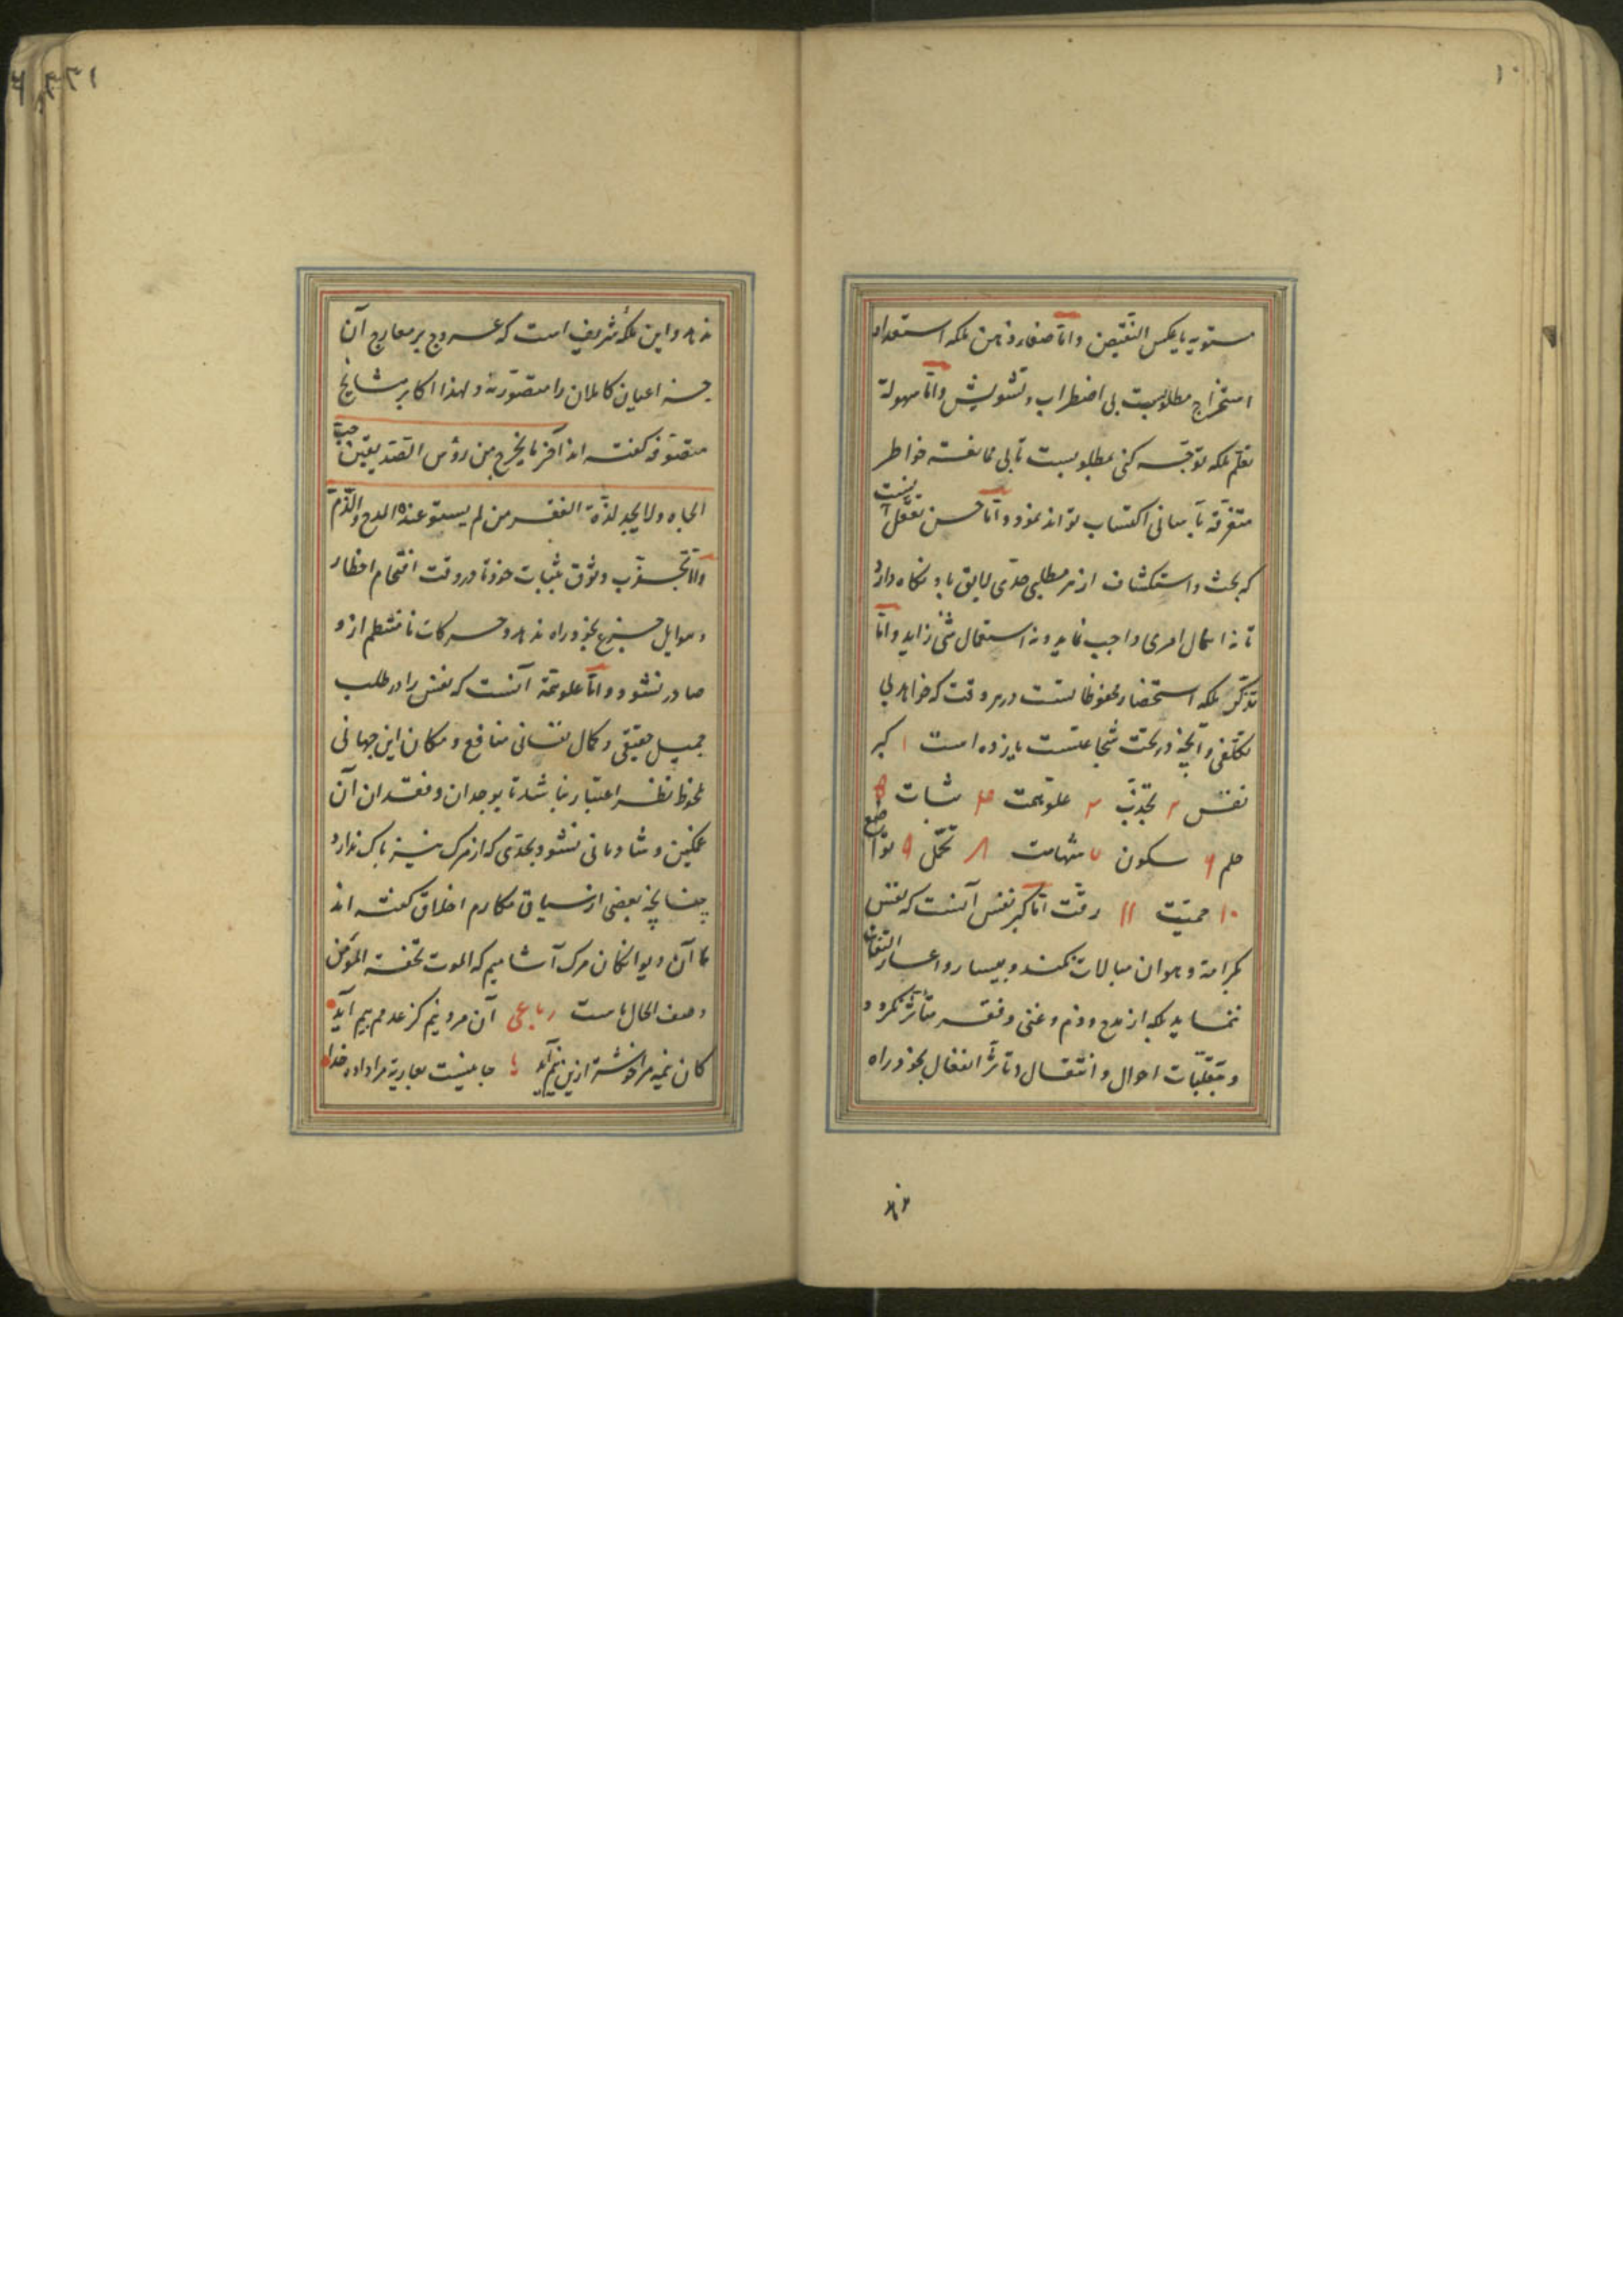 مستویه یا بعکس النّقیض و امّا صفاء ذهن ملکه استعداد
استخراج مطلوبست بی اضطراب و تشویش و امّا سهولة
تعلّم ملکه توجّه کنی بمطلوبست تا بی ممانعت خواطر
متفرقه بآسانی اکتساب تواند نمود و امّا حسن تعقّل آنست
که بحث و استکشاف از هر مطلبی حدّی لایق باو نگاه دارد
تا نه اهمال امری واجب نماید و نه استعمال شئ زاید و امّا
تذکّر ملکه استحضار محفوظاتست در هر وقت که خواهد بی
تکلّفی و آنچه در تحت شجاعتست یازده است ۱ کبر
نفس ۲ تجدّب ۳ علوّ همت ۴ ثبات ۵
حلم ۶ سکون ۷ شهامت ۸ تحمّل ۹ تواضع
۱۰ حمیّت ۱۱ رقّت امّا کبر نفس آنست که نفس
بکرامة و هوان مبالات نکند و بیسار و اعسار التفات
ننماید بلکه از مدح و ذم و غنی و فقر متأثّر نکردد
و بتقلّبات احوال و انتقال و تأثر انفعال بخود راه
ندهد
ندهد و این ملکهٔ شریفی است که عروج بر معارج آن
جز اعیان کاملان را متصوّر نه و لهذا اکابر مشایخ
متصوّفه کفته اند آخر ما یخرج من رؤس الصّدیقین حبّ
الجاه و لا یجد لذّة الفقر من لم یستو عنده المدح و الذّم
و امّا تجدّب وثوق بثبات خود تا در وقت اقتحام اخطار
و هوایل جزع بخود راه ندهد و حرکات نامنتظم ازو
صادر نشود و امّا علو همّة آنست که نفس را در طلب
جمیل حقیقی و کمال نفسانی منافع و مکان این جهانی
ملحوظ نظر اعتبار نباشد تا بوجدان و فقدان آن
غمکین و شادمانی نشود بحدّی که از مرک نیز باک ندارد
چنانچه بعضی از سباق مکارم اخلاق کفته اند
ما آن دیوانکان مرک آشامیم که الموت تحفة المؤمن
وصف الحال ماست رباعی آن مرد نیم کز عدمم بیم آید
کان نیمه مرا خوشتر ازین نیم آید جانیست بعاریة مرا داده خدا